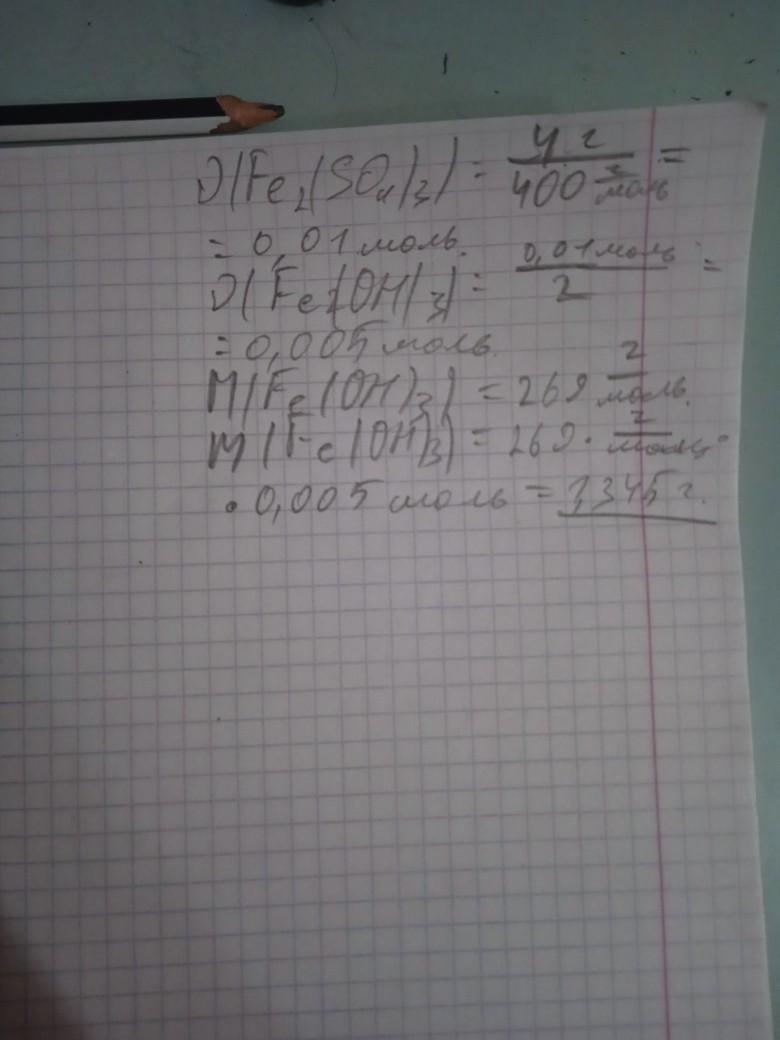 ν(Fe₂(SO₄)₃) = 4 г / 400 г/моль =
= 0,01 моль.
ν(Fe(OH)₃) = 0,01 моль / 2 =
= 0,005 моль.
M(Fe(OH)₃) = 269 г/моль.
m(Fe(OH)₃) = 269 · г/моль ·
· 0,005 моль = 1,345 г.